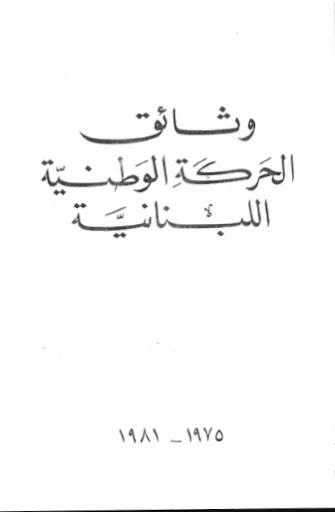 وثائق
الحَركَةِ الوَطنيّة
اللبنَانيَّة
١٩٧٥ - ١٩٨١